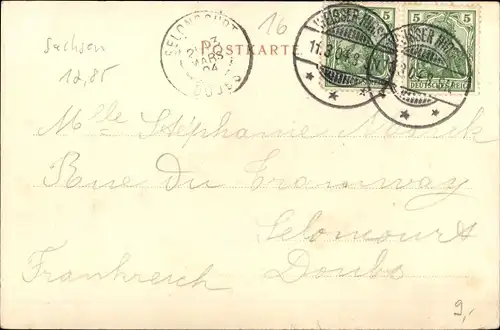 Sachsen
12,85
16
SELONCOURT
13
MARS
04
DOUBS
POSTKARTE
5
5
WEISSER HIRSCH
11.3.04
WEISSER HIRSCH
DEUTSCHES REICH
Mlle Stéphanie
Rue du Tramway
Seloncourt
Doubs
Frankreich
9,-